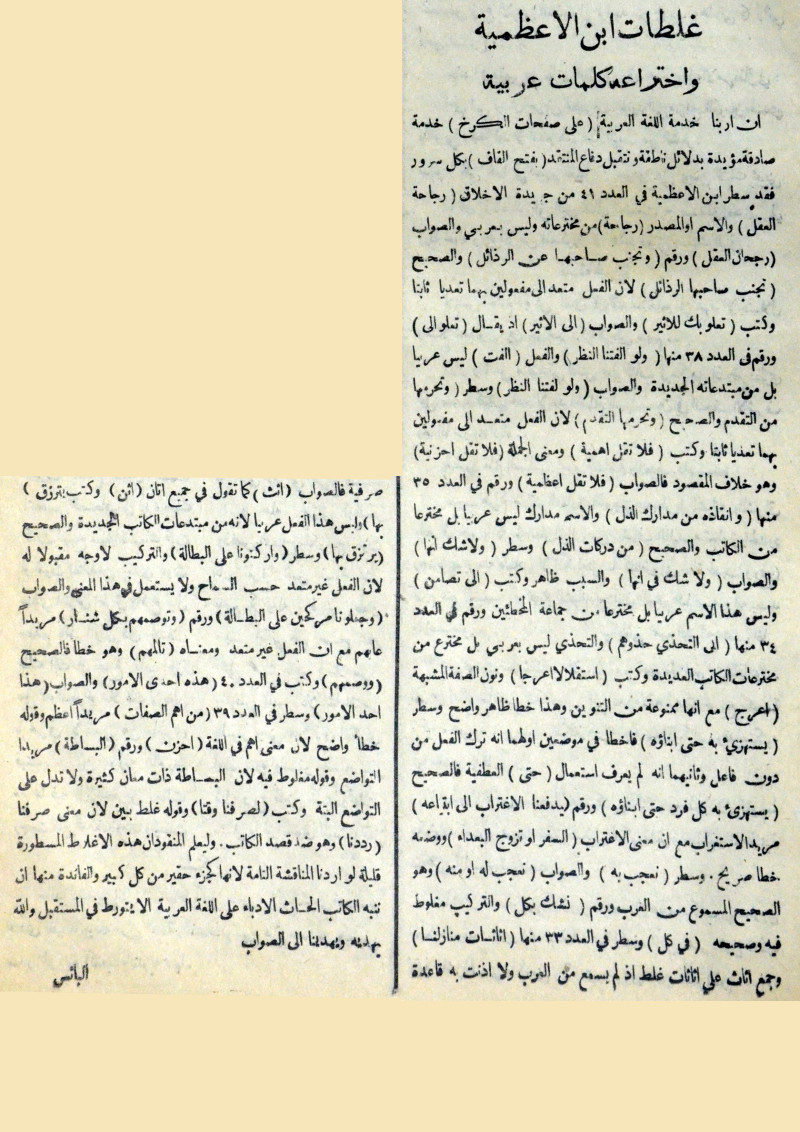 غلطات ابن الاعظمية
واختراعه كلمات عربية
ان اربنا خدمة اللغة العربية (على صفحات الكرخ) خدمة
صادقة مؤيدة بدلائل ناطقة ونتقبل دفاع المنتقد (بفتح القاف) بكل سرور
فقد سطر ابن الاعظمية في العدد ٤١ من جريدة الاخلاق (رجاحة
العقل) والاسم اوالمصدر (رجاحة) من مخترعاته وليس بعربي والصواب
(رجحان العقل) ورقم (وتجنب صاحبها عن الرذائل) والصحيح
(تجنب صاحبها الرذائل) لان الفعل متعد الى مفعولين بهما تعديا ثابتا
وكتب (تعلو بك للاثير) والصواب (الى الاثير) اذ يقال (تعلو الى)
ورقم في العدد ٣٨ منها (ولو الفتنا النظر) والفعل (الفت) ليس عربيا
بل من مبتدعاته الجديدة والصواب (ولو لفتنا النظر) وسطر (وتحرمها
من التقدم والصحيح (وتحرمها التقدم) لان الفعل متعد الى مفعولين
بهما تعديا ثابتا وكتب (فلا تقل اهمية) ومعنى الجملة (فلا تقل احزنية)
وهو خلاف المقصود فالصواب (فلا تقل اعظمية) ورقم في العدد ٣٥
منها (وانقاذه من مدارك الذل) والاسم مدارك ليس عربيا بل مخترعا
من الكاتب والصحيح (من دركات الذل) وسطر (ولاشك انها)
والصواب (ولا شك في انها) والسبب ظاهر وكتب (الى تصامن)
وليس هذا الاسم عربيا بل مخترعا من جماعة المخطئين ورقم في العدد
٣٤ منها (الى التحذي حذوهم) والتحذي ليس بعربي بل مخترع من
مخترعات الكاتب العديدة وكتب (استقلالا اعرجا) ونون الصفة المشبهة
(اعرج) مع انها ممنوعة من التنوين وهذا خطا ظاهر واضح وسطر
(يستهزئ به حتى ابناؤه) فاخطا في موضعين اولهما انه ترك الفعل من
دون فاعل وثانيهما انه لم يعرف استعمال (حتى) العطفية فالصحيح
(يستهزئ به كل فرد حتى ابناؤه) ورقم (يدفعنا الاغتراب الى ايقاعه)
مريدا الاستغراب مع ان معنى الاغتراب (السفر او تزوج البعداء) ووضعه
خطا صريح. وسطر (نعجب به) والصواب (نعجب له او منه) وهو
الصحيح المسموع من العرب ورقم (نشك بكل) والتركيب مغلوط
فيه وصحيحه (في كل) وسطر في العدد ٣٣ منها (اثاثات منازلنا)
وجمع اثاث على اثاثات غلط اذ لم يسمع من العرب ولا اذنت به قاعدة
صرفية فالصواب (اثث) كما تقول في جميع اتان (اتن) وكتب يترزق)
بها) وليس هذا الفعل عربيا لانه من مبتدعات الكاتب الجديدة والصحيح
(يرتزق بها) وسطر (واركنونا على البطالة) والتركيب لاوجه مقبولا له
لان الفعل غير متعد حسب السماح ولا يستعمل في هذا المعنى والصواب
(وجعلونا مركحين على البطالة) ورقم (وتوصمهم بكل شنار) مريداً
عابهم مع ان الفعل غير متعد ومعناه (تالمهم) وهو خطا فالصحيح
(ووصمهم) وكتب في العدد ٤٠ (هذه احدى الامور) والصواب (هذا
احد الامور) وسطر في العدد ٣٩ (من اهم الصفات) مريداً اعظم وقوله
خطأ واضح لان معنى اهم في اللغة (احزن) ورقم (البساطة) مريدا
التواضع وقوله مغلوط فيه لان البساطة ذات معان كثيرة ولا تدل على
التواضع البتة وكتب (لصرفنا وقتا) وقوله غلط بين لان معنى صرفنا
(رددنا) وهو ضد قصد الكاتب. وليعلم المنقودان هذه الاغلاط المسطورة
قليلة لو اردنا المناقشة التامة لانها كجزء حقير من كل كبير والفائدة منها ان
ننبه الكاتب الحاث الادباء على اللغة العربية الا يتورط في المستقبل والله
يهديه ويهدينا الى الصواب
البائس